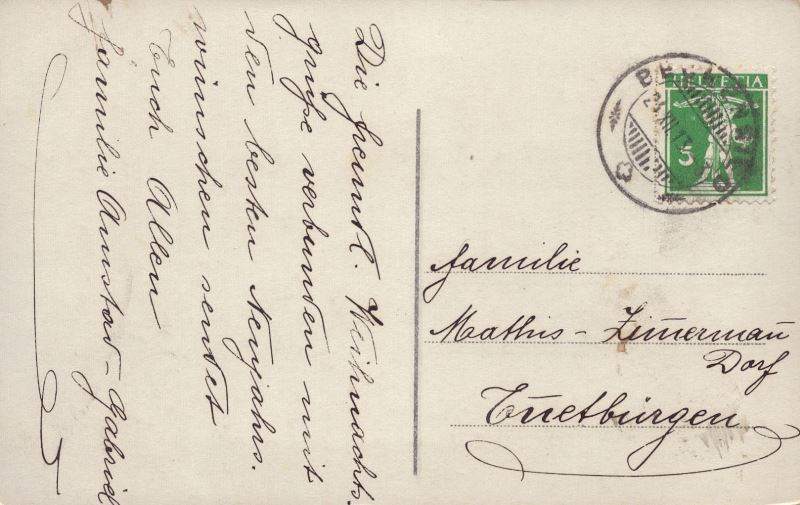 Die freundl. Weihnachts-
grüße verbunden mit
den besten Neujahrs.
wünschen sendet
Euch Allen
Familie Amstad-Gabriel
HELVETIA
5
Familie
Mathis-Zimerman
Dorf